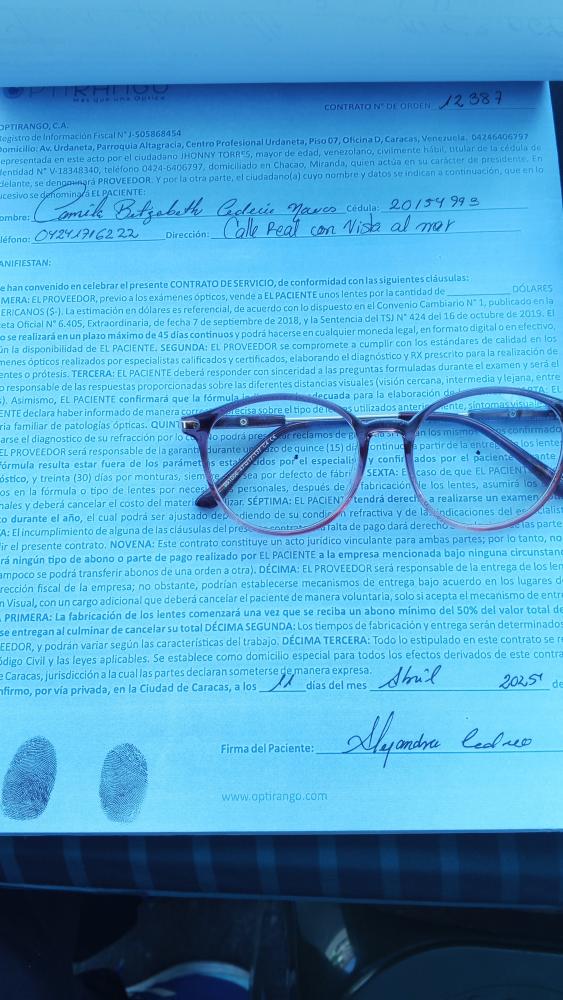 OPTIRANGO
Más que una Óptica
CONTRATO N° DE ORDEN 12387
OPTIRANGO, C.A.
Registro de Información Fiscal N° J-505868454
Domicilio: Av. Urdaneta, Parroquia Altagracia, Centro Profesional Urdaneta, Piso 07, Oficina D, Caracas, Venezuela. 04246406797
epresentada en este acto por el ciudadano JHONNY TORRES, mayor de edad, venezolano, civilmente hábil, titular de la cédula de
dentidad N° V-18348340, teléfono 0424-6406797, domiciliado en Chacao, Miranda, quien actúa en su carácter de presidente. En
delante, se denominará PROVEEDOR. Y por la otra parte, el ciudadano(a) cuyo nombre y datos se indican a continuación, que en lo
ucesivo se denominará EL PACIENTE:
ombre: Camila Cédula: 20154993
léfono: 04241716222 Dirección: Calle Real con Vista al mar
ANIFIESTAN:
e han convenido en celebrar el presente CONTRATO DE SERVICIO, de conformidad con las siguientes cláusulas:
MERA: EL PROVEEDOR, previo a los exámenes ópticos, vende a EL PACIENTE unos lentes por la cantidad de DÓLARES
ERICANOS ($-). La estimación en dólares es referencial, de acuerdo con lo dispuesto en el Convenio Cambiario N° 1, publicado en la
eta Oficial N° 6.405, Extraordinaria, de fecha 7 de septiembre de 2018, y la Sentencia del TSJ N° 424 del 16 de octubre de 2019. El
o se realizará en un plazo máximo de 45 días continuos y podrá hacerse en cualquier moneda legal, en formato digital o en efectivo,
ún la disponibilidad de EL PACIENTE. SEGUNDA: EL PROVEEDOR se compromete a cumplir con los estándares de calidad en los
menes ópticos realizados por especialistas calificados y certificados, elaborando el diagnóstico y RX prescrito para la realización de
entes o prótesis. TERCERA: EL PACIENTE deberá responder con sinceridad a las preguntas formuladas durante el examen y será el
o responsable de las respuestas proporcionadas sobre las diferentes distancias visuales (visión cercana, intermedia y lejana, entre
s). Asimismo, EL PACIENTE confirmará que la fórmula adecuada para la elaboración d
ENTE declara haber informado de manera precisa sobre el tipo de utilizados anteriormente, síntomas visuale
ria familiar de patologías ópticas. QUIN
arse el diagnóstico de su refracción por lo No podrá reclamos de confirmado
EL PROVEEDOR será responsable de la garantía durante de quince (15) días continuos a partir de la entre los lentes
fórmula resulta estar fuera de los parámetros establecidos por el especialis y confirmados por el paciente
óstico, y treinta (30) días por monturas, siempre sea por defecto de fábri SEXTA: E caso de que EL PACIENTE
os en la fórmula o tipo de lentes por neces personales, después de fabricación de los lentes, asumirá los
nales y deberá cancelar el costo del mater izar. SÉPTIMA: EL PACIENT tendrá derech a realizarse un examen
to durante el año, el cual podrá ser ajustado dependiendo de su condic refractiva y de las indicaciones del especialis
A: El incumplimiento de alguna de las cláusulas del contrato falta de pago dará derecho las partes
ir el presente contrato. NOVENA: Este contrato constituye un acto jurídico vinculante para ambas partes; por lo tanto, no
rá ningún tipo de abono o parte de pago realizado por EL PACIENTE a la empresa mencionada bajo ninguna circunstanc
ampoco se podrá transferir abonos de una orden a otra). DÉCIMA: EL PROVEEDOR será responsable de la entrega de los len
rección fiscal de la empresa; no obstante, podrían establecerse mecanismos de entrega bajo acuerdo en los lugares d
n Visual, con un cargo adicional que deberá cancelar el paciente de manera voluntaria, solo si acepta el mecanismo de entre
PRIMERA: La fabricación de los lentes comenzará una vez que se reciba un abono mínimo del 50% del valor total de
se entregan al culminar de cancelar su total DÉCIMA SEGUNDA: Los tiempos de fabricación y entrega serán determinados
EEDOR, y podrán variar según las características del trabajo. DÉCIMA TERCERA: Todo lo estipulado en este contrato se re
ódigo Civil y las leyes aplicables. Se establece como domicilio especial para todos los efectos derivados de este contra
e Caracas, jurisdicción a la cual las partes declaran someterse de manera expresa.
nfirmo, por vía privada, en la Ciudad de Caracas, a los 11 días del mes Abril 2025 de
Firma del Paciente: Alejandra Cedeño
www.optirango.com